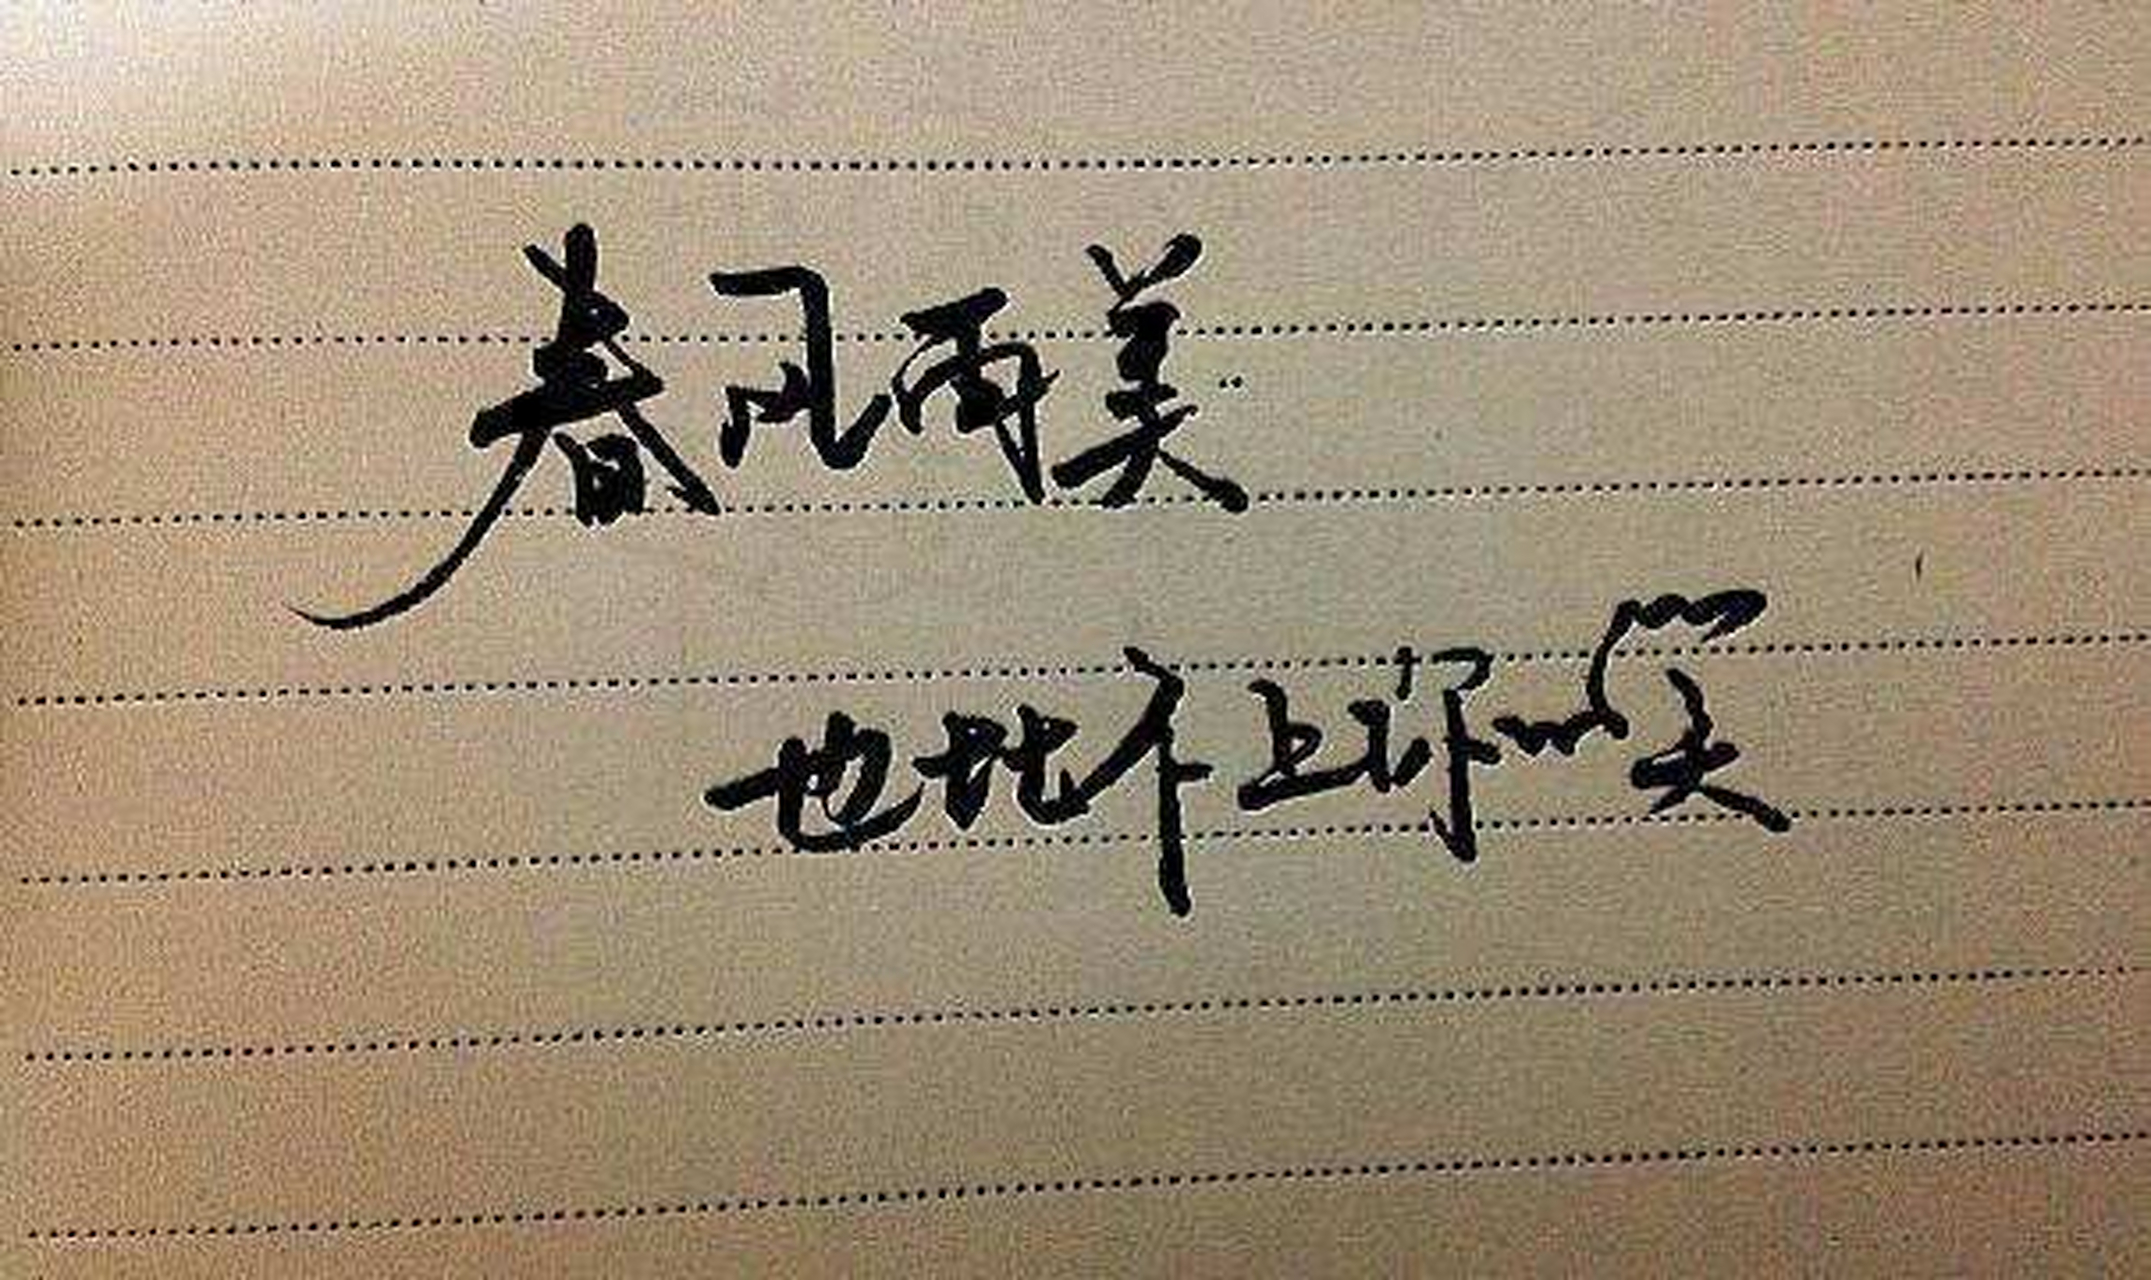 春风再美
也比不上你的笑